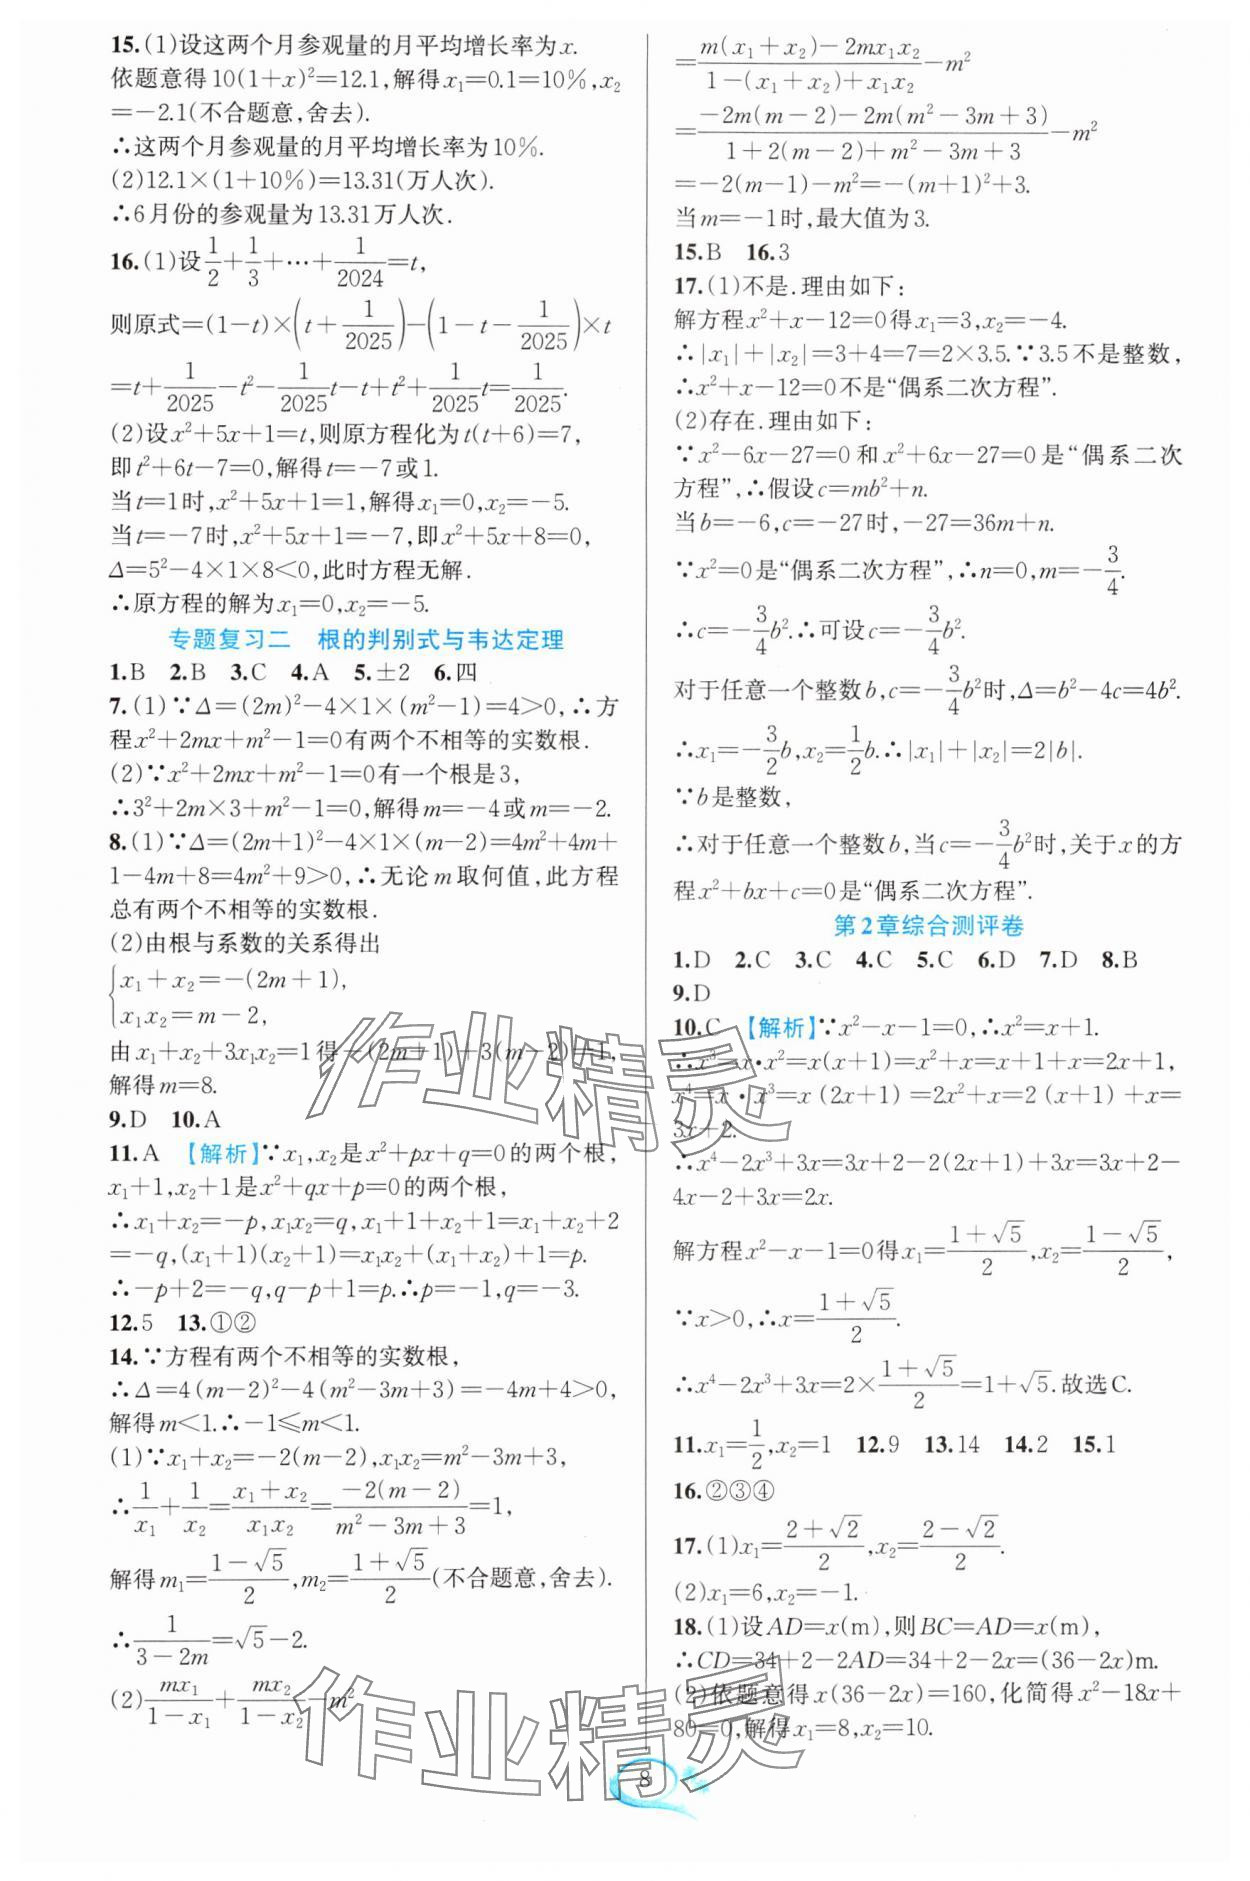 15.(1)设这两个月参观量的月平均增长率为x.
依题意得10(1+x)²=12.1,解得x₁=0.1=10%,x₂
=-2.1(不合题意,舍去).
∴这两个月参观量的月平均增长率为10%.
(2)12.1×(1+10%)=13.31(万人次).
∴6月份的参观量为13.31万人次.
16.(1)设1/2+1/3+⋯+1/2024=t,
则原式=(1-t)×(t+1/2025)-(1-t-1/2025)×t
=t+1/2025-t²-1/2025t-t+t²+1/2025t=1/2025.
(2)设x²+5x+1=t,则原方程化为t(t+6)=7,
即t²+6t-7=0,解得t=-7或1.
当t=1时,x²+5x+1=1,解得x₁=0,x₂=-5.
当t=-7时,x²+5x+1=-7,即x²+5x+8=0,
Δ=5²-4×1×8<0,此时方程无解.
∴原方程的解为x₁=0,x₂=-5.
专题复习二 根的判别式与韦达定理
1.B 2.B 3.C 4.A 5.±2 6.四
7.(1)∵Δ=(2m)²-4×1×(m²-1)=4>0,∴方
程x²+2mx+m²-1=0有两个不相等的实数根.
(2)∵x²+2mx+m²-1=0有一个根是3,
∴3²+2m×3+m²-1=0,解得m=-4或m=-2.
8.(1)∵Δ=(2m+1)²-4×1×(m-2)=4m²+4m+
1-4m+8=4m²+9>0,∴无论m取何值,此方程
总有两个不相等的实数根.
(2)由根与系数的关系得出
{x₁+x₂=-(2m+1),
x₁x₂=m-2,
由x₁+x₂+3x₁x₂=1得-(2m+1)+3(m-2)=1,
解得m=8.
9.D 10.A
11.A 【解析】∵x₁,x₂是x²+px+q=0的两个根,
x₁+1,x₂+1是x²+qx+p=0的两个根,
∴x₁+x₂=-p,x₁x₂=q,x₁+1+x₂+1=x₁+x₂+2
=-q,(x₁+1)(x₂+1)=x₁x₂+(x₁+x₂)+1=p.
∴-p+2=-q,q-p+1=p.∴p=-1,q=-3.
12.5 13.①②
14.∵方程有两个不相等的实数根,
∴Δ=4(m-2)²-4(m²-3m+3)=-4m+4>0,
解得m<1.∴-1≤m<1.
(1)∵x₁+x₂=-2(m-2),x₁x₂=m²-3m+3,
∴1/x₁+1/x₂=(x₁+x₂)/(x₁x₂)=-2(m-2)/(m²-3m+3)=1,
解得m₁=(1-√5)/2,m₂=(1+√5)/2(不合题意,舍去).
∴1/(3-2m)=√5-2.
(2)mx₁/(1-x₁)+mx₂/(1-x₂)-m²
=(m(x₁+x₂)-2mx₁x₂)/(1-(x₁+x₂)+x₁x₂)-m²
=(-2m(m-2)-2m(m²-3m+3))/(1+2(m-2)+m²-3m+3)-m²
=-2(m-1)-m²=-(m+1)²+3.
当m=-1时,最大值为3.
15.B 16.3
17.(1)不是.理由如下:
解方程x²+x-12=0得x₁=3,x₂=-4.
∴|x₁|+|x₂|=3+4=7=2×3.5.∵3.5不是整数,
∴x²+x-12=0不是“偶系二次方程”.
(2)存在.理由如下:
∵x²-6x-27=0和x²+6x-27=0是“偶系二次
方程”,∴假设c=mb²+n.
当b=-6,c=-27时,-27=36m+n.
∵x²=0是“偶系二次方程”,∴n=0,m=-3/4.
∴c=-3/4b².∴可设c=-3/4b².
对于任意一个整数b,c=-3/4b²时,Δ=b²-4c=4b².
∴x₁=-3/2b,x₂=1/2b.∴|x₁|+|x₂|=2|b|.
∵b是整数,
∴对于任意一个整数b,当c=-3/4b²时,关于x的方
程x²+bx+c=0是“偶系二次方程”.
第2章综合测评卷
1.D 2.C 3.C 4.C 5.C 6.D 7.D 8.B
9.D
10.C 【解析】∵x²-x-1=0,∴x²=x+1.
∴x³=x•x²=x(x+1)=x²+x=x+1+x=2x+1,
x⁴=x•x³=x(2x+1)=2x²+x=2(x+1)+x=
3x+2.
∴x⁴-2x³+3x=3x+2-2(2x+1)+3x=3x+2-
4x-2+3x=2x.
解方程x²-x-1=0得x₁=(1+√5)/2,x₂=(1-√5)/2,
∵x>0,∴x=(1+√5)/2.
∴x⁴-2x³+3x=2×(1+√5)/2=1+√5.故选C.
11.x₁=1/2,x₂=1 12.9 13.14 14.2 15.1
16.②③④
17.(1)x₁=(2+√2)/2,x₂=(2-√2)/2.
(2)x₁=6,x₂=-1.
18.(1)设AD=x(m),则BC=AD=x(m),
∴CD=34+2-2AD=34+2-2x=(36-2x)m.
(2)依题意得x(36-2x)=160,化简得x²-18x+
80=0,解得x₁=8,x₂=10.
作业精灵
作业精灵
8